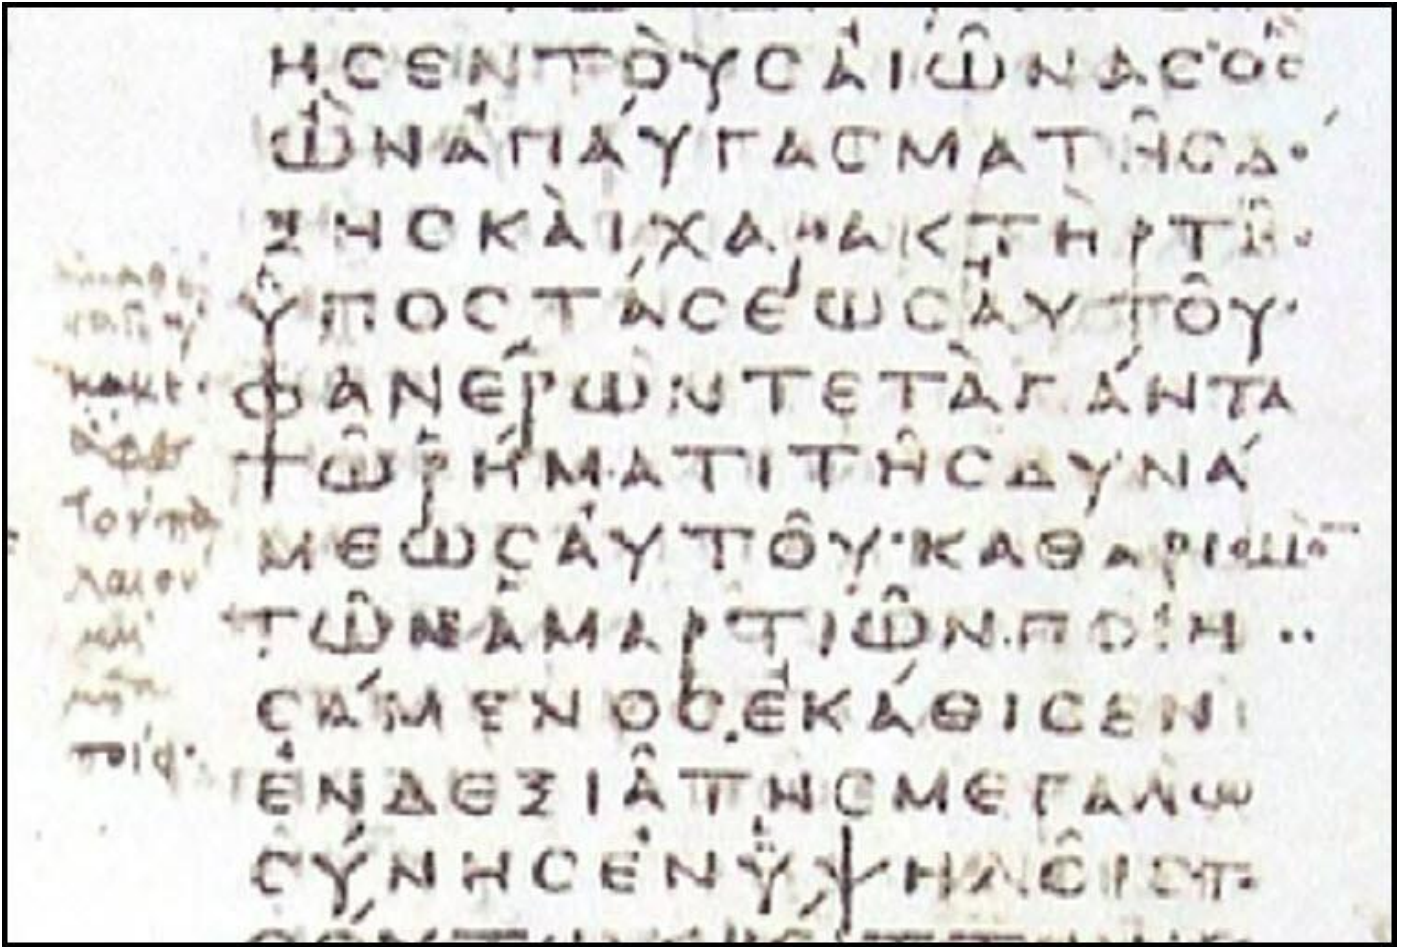 ΗϹΕΝΤΟΥϹΑΙΩΝΑϹΟϹ
ΩΝΑΠΑΥΓΑϹΜΑΤΗϹΔΟ
ΞΗϹΚΑΙΧΑΡΑΚΤΗΡΤΗϹ
ΥΠΟϹΤΑϹΕΩϹΑΥΤΟΥ·
ΦΑΝΕΡΩΝΤΕΤΑΠΑΝΤΑ
ΤΩΡΗΜΑΤΙΤΗϹΔΥΝΑ
ΜΕΩϹΑΥΤΟΥ·ΚΑΘΑΡΙϹΜΟ̅
ΤΩΝΑΜΑΡΤΙΩΝ·ΠΟΙΗ
ϹΑΜΕΝΟϹ·ΕΚΑΘΙϹΕΝ
ΕΝΔΕΞΙΑΤΗϹΜΕΓΑΛΩ
ϹΥΝΗϹΕΝΫΨΗΛΟΙϹΤΟ
κακὲ·
ἄφες
τὸν πα
λαιὸν
μὴ
ποίει·